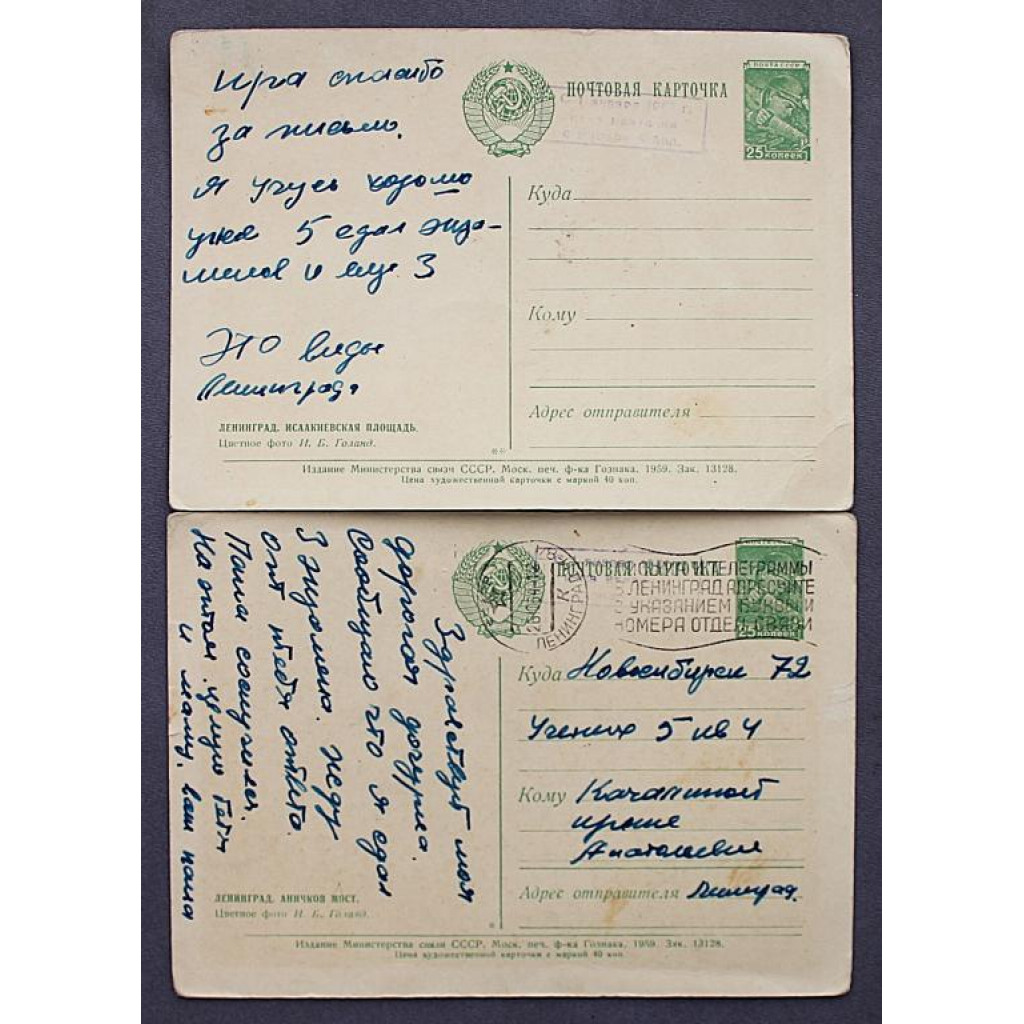 Ира спасибо
за письмо.
Я учусь хорошо
уже 5 сдал экза-
менов и еще 3
ЭТО виды
Ленинграда
ЛЕНИНГРАД. ИСААКИЕВСКАЯ ПЛОЩАДЬ.
Цветное фото И. Б. Голанд.
ПОЧТОВАЯ КАРТОЧКА
ПОЧТА СССР
25 КОПЕЕК
Куда
Кому
Адрес отправителя
Издание Министерства связи СССР. Моск. печ. ф-ка Гознака. 1959. Зак. 13128.
Цена художественной карточки с маркой 40 коп.
Здравствуй моя
дорогая дочурка.
Сообщаю что я сдал
3 экзамена. жду
от тебя ответа.
Папа соскучился.
На этом целую тебя
и маму. ваш папа
ЛЕНИНГРАД. АНИЧКОВ МОСТ.
Цветное фото И. Б. Голанд.
ПОЧТОВАЯ КАРТОЧКА
ПОЧТА СССР
25 КОПЕЕК
ЛЕНИНГРАД
И ТЕЛЕГРАММЫ
В ЛЕНИНГРАД АДРЕСУЙТЕ
С УКАЗАНИЕМ БУКВЫ И
НОМЕРА ОТДЕЛ. СВЯЗИ
Куда Новосибирск 72
Ученых 5 кв 4
Кому
Ирине
Анатольевне
Адрес отправителя Ленинград.
Издание Министерства связи СССР. Моск. печ. ф-ка Гознака. 1959. Зак. 13128.
Цена художественной карточки с маркой 40 коп.